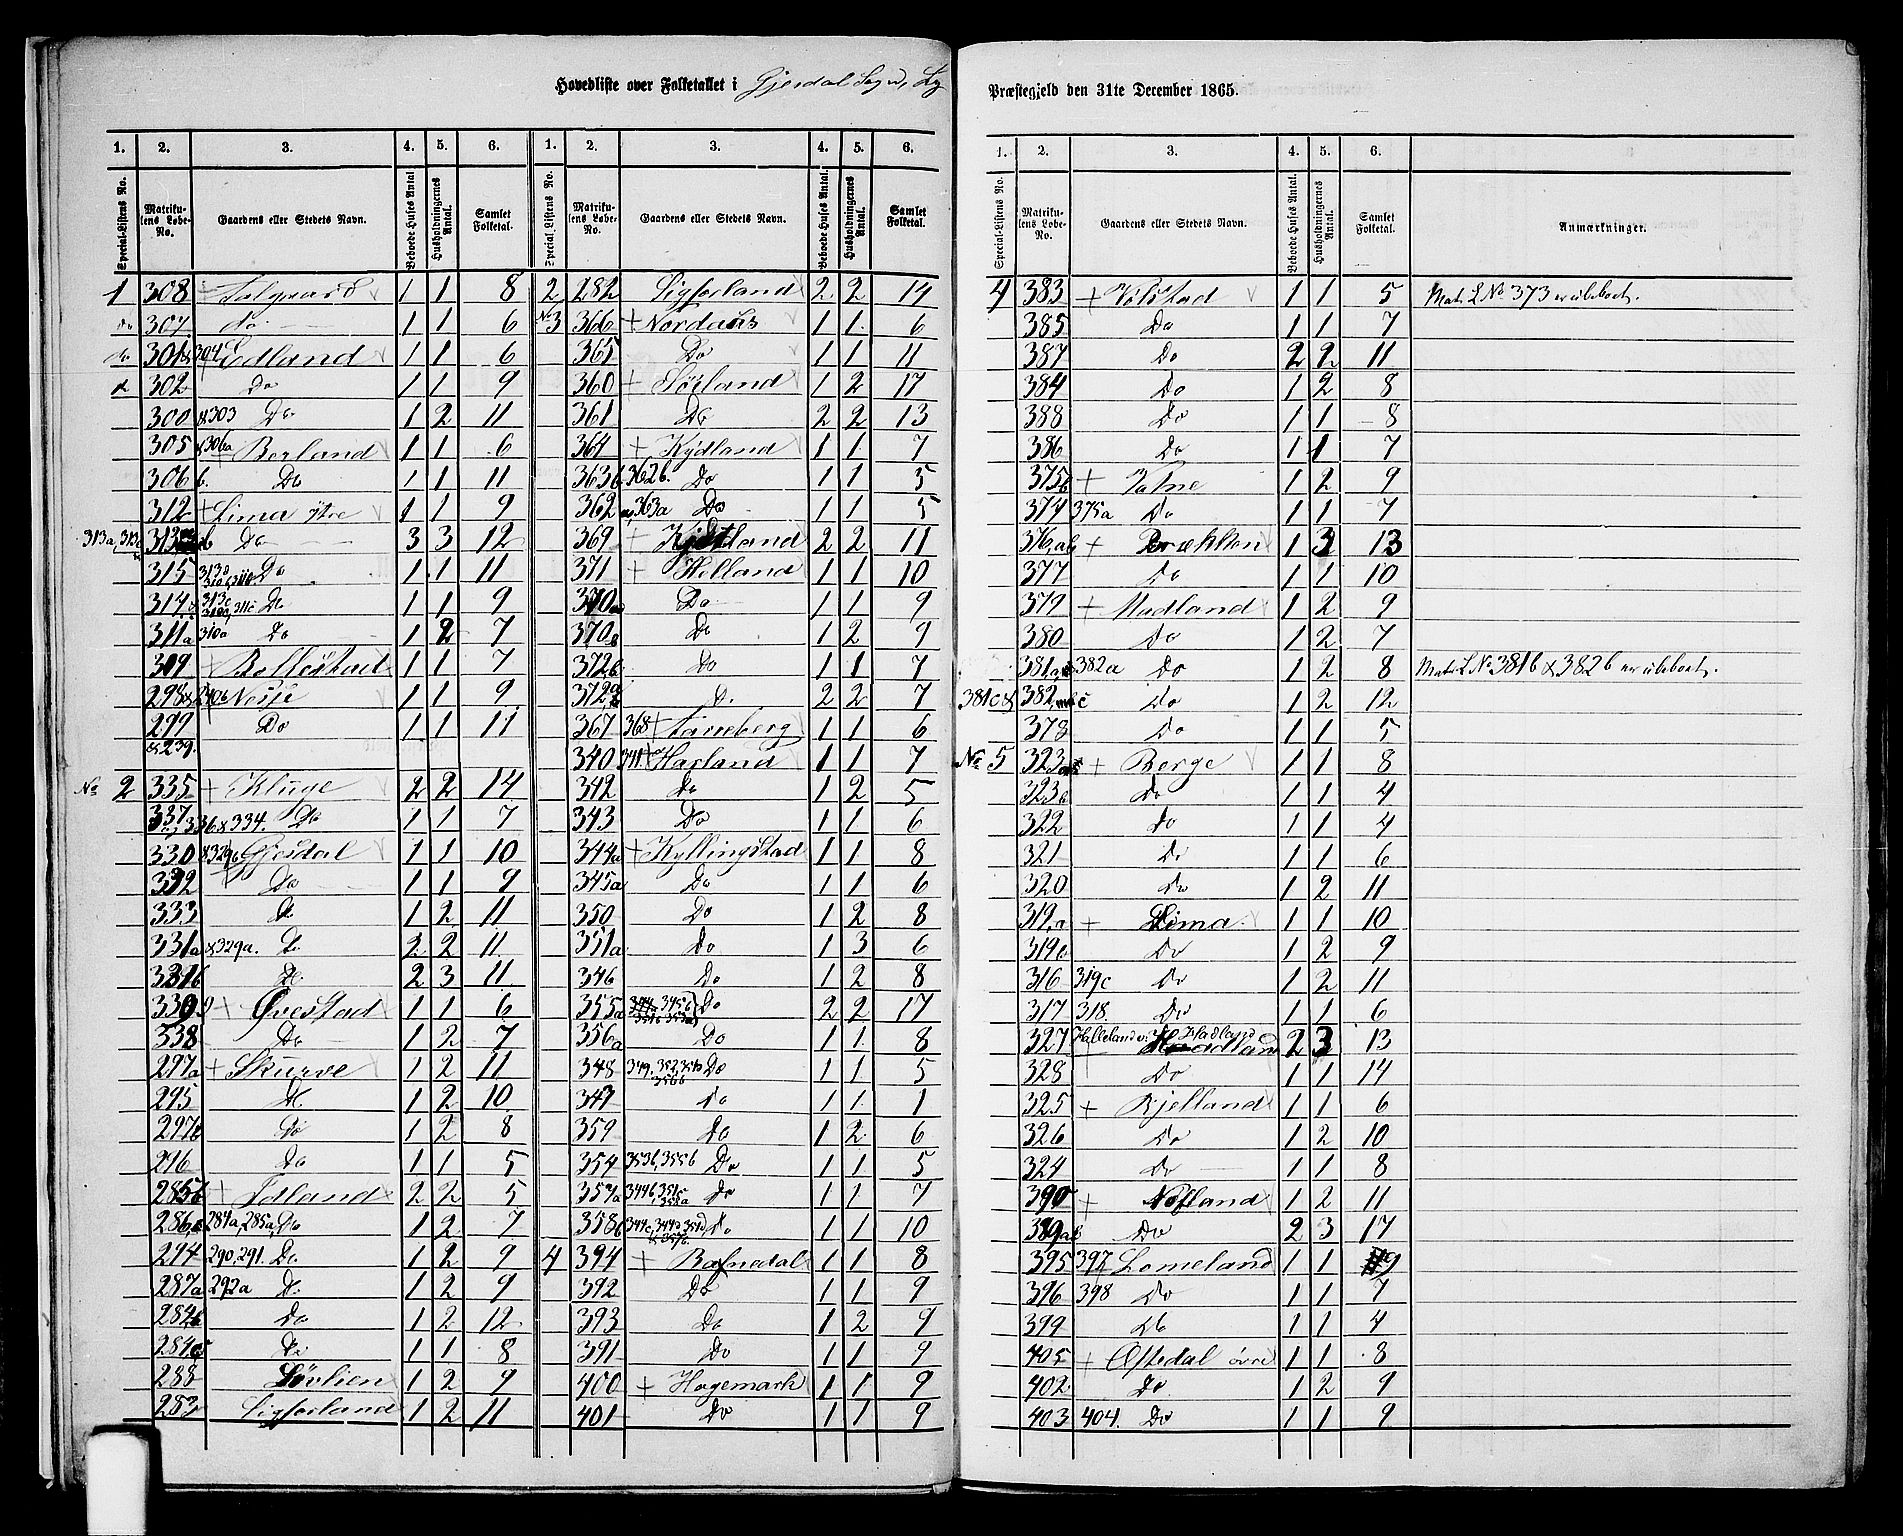 Hovedliste over Folketallet i Gjesdal Sogn, Ly
Præstegjeld den 31te December 1865.
1. 2. 3. 4. 5. 6. 1. 2. 3. 4. 5. 6.
Special-Listens No. Matrikulens Løbe-No. Gaardens eller Stedets Navn. Beboede Huses Antal Husholdningernes Antal. Samlet Folketal. Special-Listens No. Matrikulens Løbe-No. Gaardens eller Stedets Navn. Beboede Huses Antal. Husholdningernes Antal. Samlet Folketal.
1 308 Aalgaard 1 1 8
do 307 do 1 1 6
do 301 & 304 Edland 1 1 6
302 Do 1 1 9
300 & 303 Do 1 2 11
305 & 306a + Berland 1 1 6
306 b. Do 1 1 11
312 + Lima ytre 1 1 9
313a, 313 Do 3 3 12
315 Do 1 1 11
314 313c Do 1 1 9
311a 310a Do 1 2 7
309 + Bollestad 1 1 7
298 & 240b Nesse 1 1 9
299 Do 1 1 11
& 239.
No 2 335 + Kluge 2 2 14
337 336 & 334. Do 1 1 7
330 & 329b Gjesdal 1 1 10
332 Do 1 1 9
333 Do 1 2 11
331a & 329a. Do 2 2 11
331b Do 2 3 11
339 + Øvestad 1 1 6
338 Do 1 2 7
297a + Skurve 1 2 11
295 Do 1 2 10
297b Do 1 2 8
296 Do 1 1 5
285b + Idland 2 2 5
286 284a, 285a, Do 1 2 7
294 290, 291. Do 1 2 9
287a 292a Do 1 2 9
284b Do 1 2 12
284c Do 1 1 8
288 Løvlien 1 2 9
283 Sigforland 1 2 11
2 282 Sigforland 2 2 14
No 3 366 + Nordaas 1 1 6
365 Do 1 1 11
360 + Sørland 1 2 17
361 Do 2 2 13
364 + Kydland 1 1 7
363b 362b. Do 1 1 5
362 363a Do 1 1 5
369 + Kydland 2 2 11
371 + Helland 1 1 10
370a Do 1 1 9
370b Do 1 2 9
372b Do 1 1 7
372a Do 2 2 7
367 368 + Taneberg 1 1 6
340 341 + Harland 1 1 7
342 Do 1 2 5
343 Do 1 1 6
344a + Kyllingstad 1 1 8
345a Do 1 1 6
350 Do 1 2 8
351a Do 1 3 6
346 Do 1 2 8
355a 345b Do 2 2 17
356a Do 1 1 8
348 349, 352, 351b Do 1 1 5
356b
347 Do 1 1 1
359 Do 1 2 6
354 353b, 355b Do 1 1 5
357a 344b, 351c Do 1 1 7
358b 344c, 344d 351d, Do 1 1 10
4 394 + Ravndal 1 1 8
392 Do 1 1 9
393 Do 1 2 9
391 Do 1 1 9
400 + Hagemark 1 1 9
401 Do 1 1 9
1. 2. 3. 4. 5. 6. 8
Special-Listens No. Matrikulens Løbe-No. Gaardens eller Stedets Navn. Beboede Huses Antal. Husholdningernes Antal. Samlet Folketal. Anmærkninger.
4 383 + Volstad 1 1 5 Matr L No 373 er ubeboet.
385 Do 1 1 7
387 Do 2 2 11
384 Do 1 2 8
388 Do 1 1 8
386 Do 1 1 7
375b + Valne 1 2 9
374 375a Do 1 1 7
376, ab + Brækken 1 3 13
377 Do 1 1 10
379 + Madland 1 2 9
380 Do 1 2 7
381a, 382a Do 1 2 8 Matr L No 381b & 382b er ubeboet.
381c & 382 Do 1 2 12
378 Do 1 1 5
No 5 323a + Berge 1 1 8
323b Do 1 1 4
322 Do 1 1 4
321 Do 1 1 6
320 Do 1 2 11
319, a + Lima 1 1 10
319b Do 1 2 9
316 319c Do 1 2 11
317 318. Do 1 1 6
327 Halleland Hadland 2 3 13
328 Do 1 1 14
325 + Kjelland 1 1 6
326 Do 1 2 10
324 Do 1 1 8
390 + Nofland 1 2 11
389ab Do 2 3 17
395 397 Lomeland 1 1 9
396 398 Do 1 1 7
399 Do 1 1 4
405 + Oftedal øvre 1 1 8
402 Do 1 2 9
403 404. Do 1 1 9